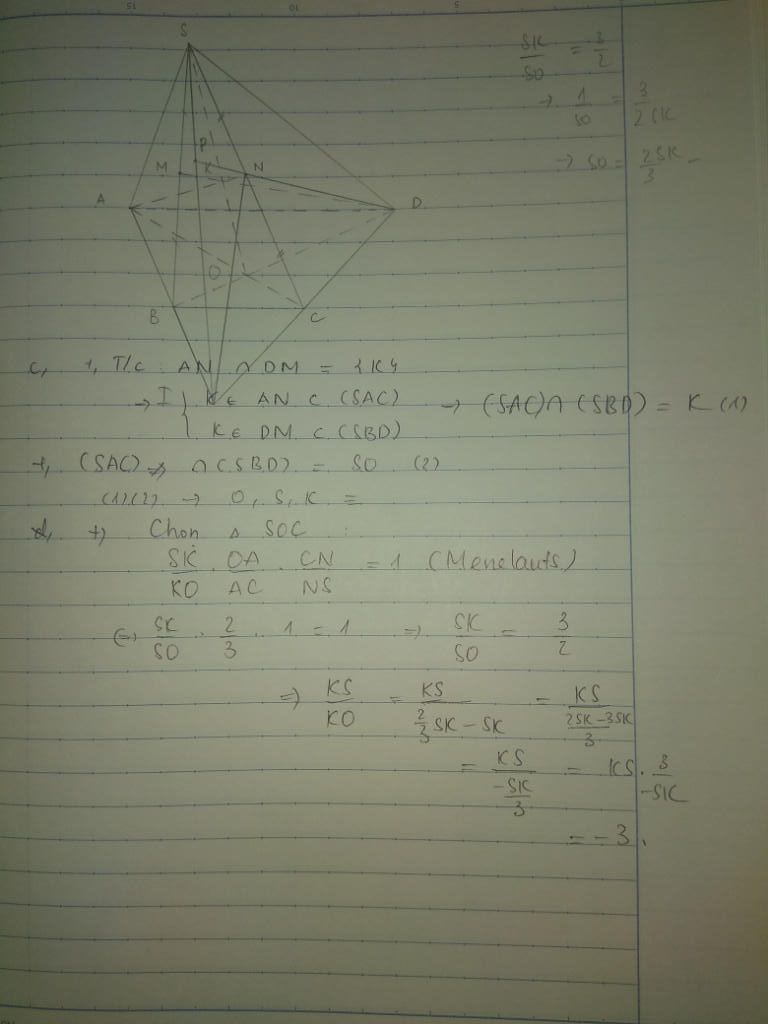 S
P
M K N
A D
O
B C
I
SK/SO = 3/2
→ 1/SO = 3/2SK
→ SO = 2SK/3
c, 1, T/c AN ∩ DM = {K}
→ { K ∈ AN ⊂ (SAC) → (SAC) ∩ (SBD) = K (1)
K ∈ DM ⊂ (SBD)
+, (SAC) ∩ (SBD) = SO (2)
(1)(2) → O, S, K =
d, +) Chọn Δ SOC :
SK/KO . OA/AC . CN/NS = 1 (Menelauts)
⇔ SK/SO . 2/3 . 1 = 1 ⇒ SK/SO = 3/2
⇒ KS/KO = KS/(2/3 SK - SK) = KS/((2SK - 3SK)/3)
= KS/(-SK/3) = KS . 3/-SK
= -3.